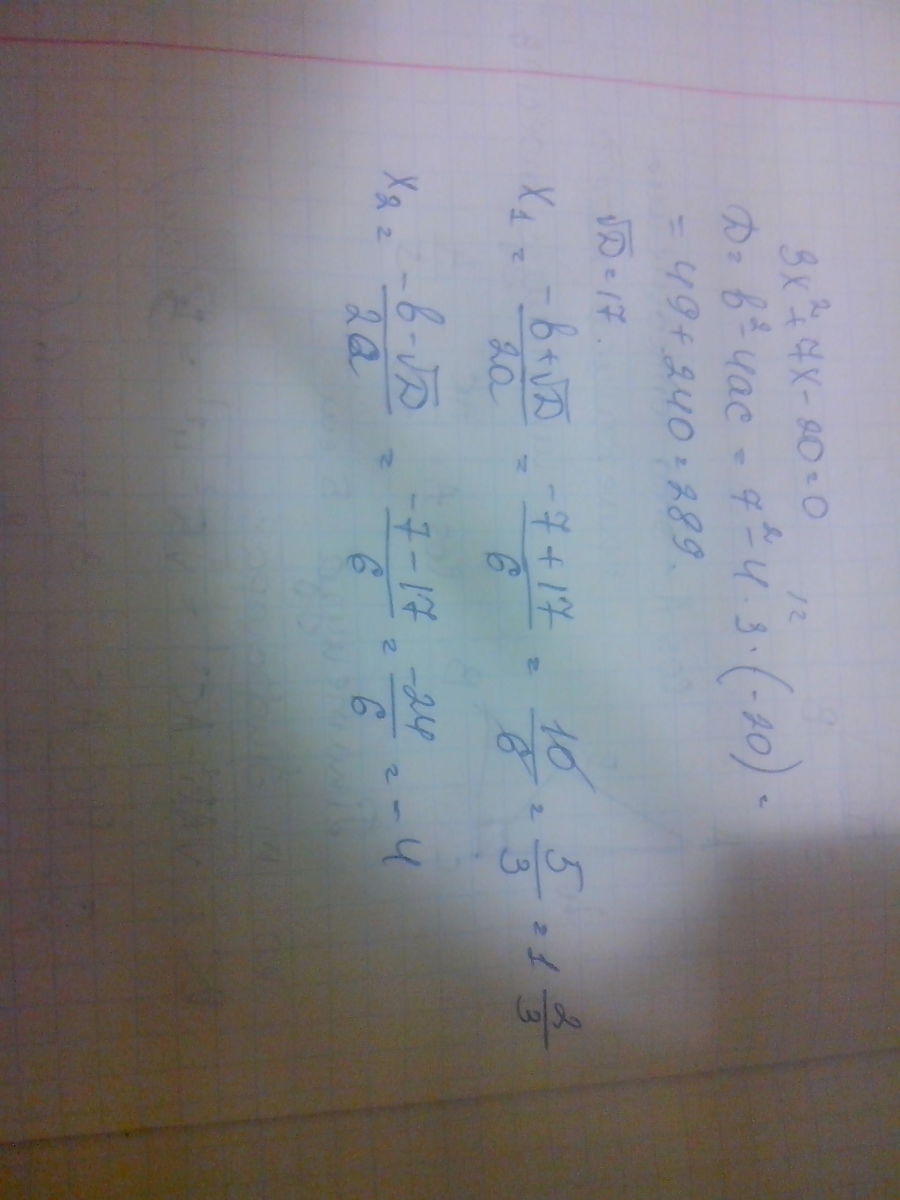 3x² + 7x - 20 = 0
12
D = b² - 4ac = 7² - 4 · 3 · (-20) =
= 49 + 240 = 289.
√D = 17.
x₁ = (-b + √D)/(2a) = (-7 + 17)/6 = 10/6 = 5/3 = 1 2/3
x₂ = (-b - √D)/(2a) = (-7 - 17)/6 = -24/6 = -4